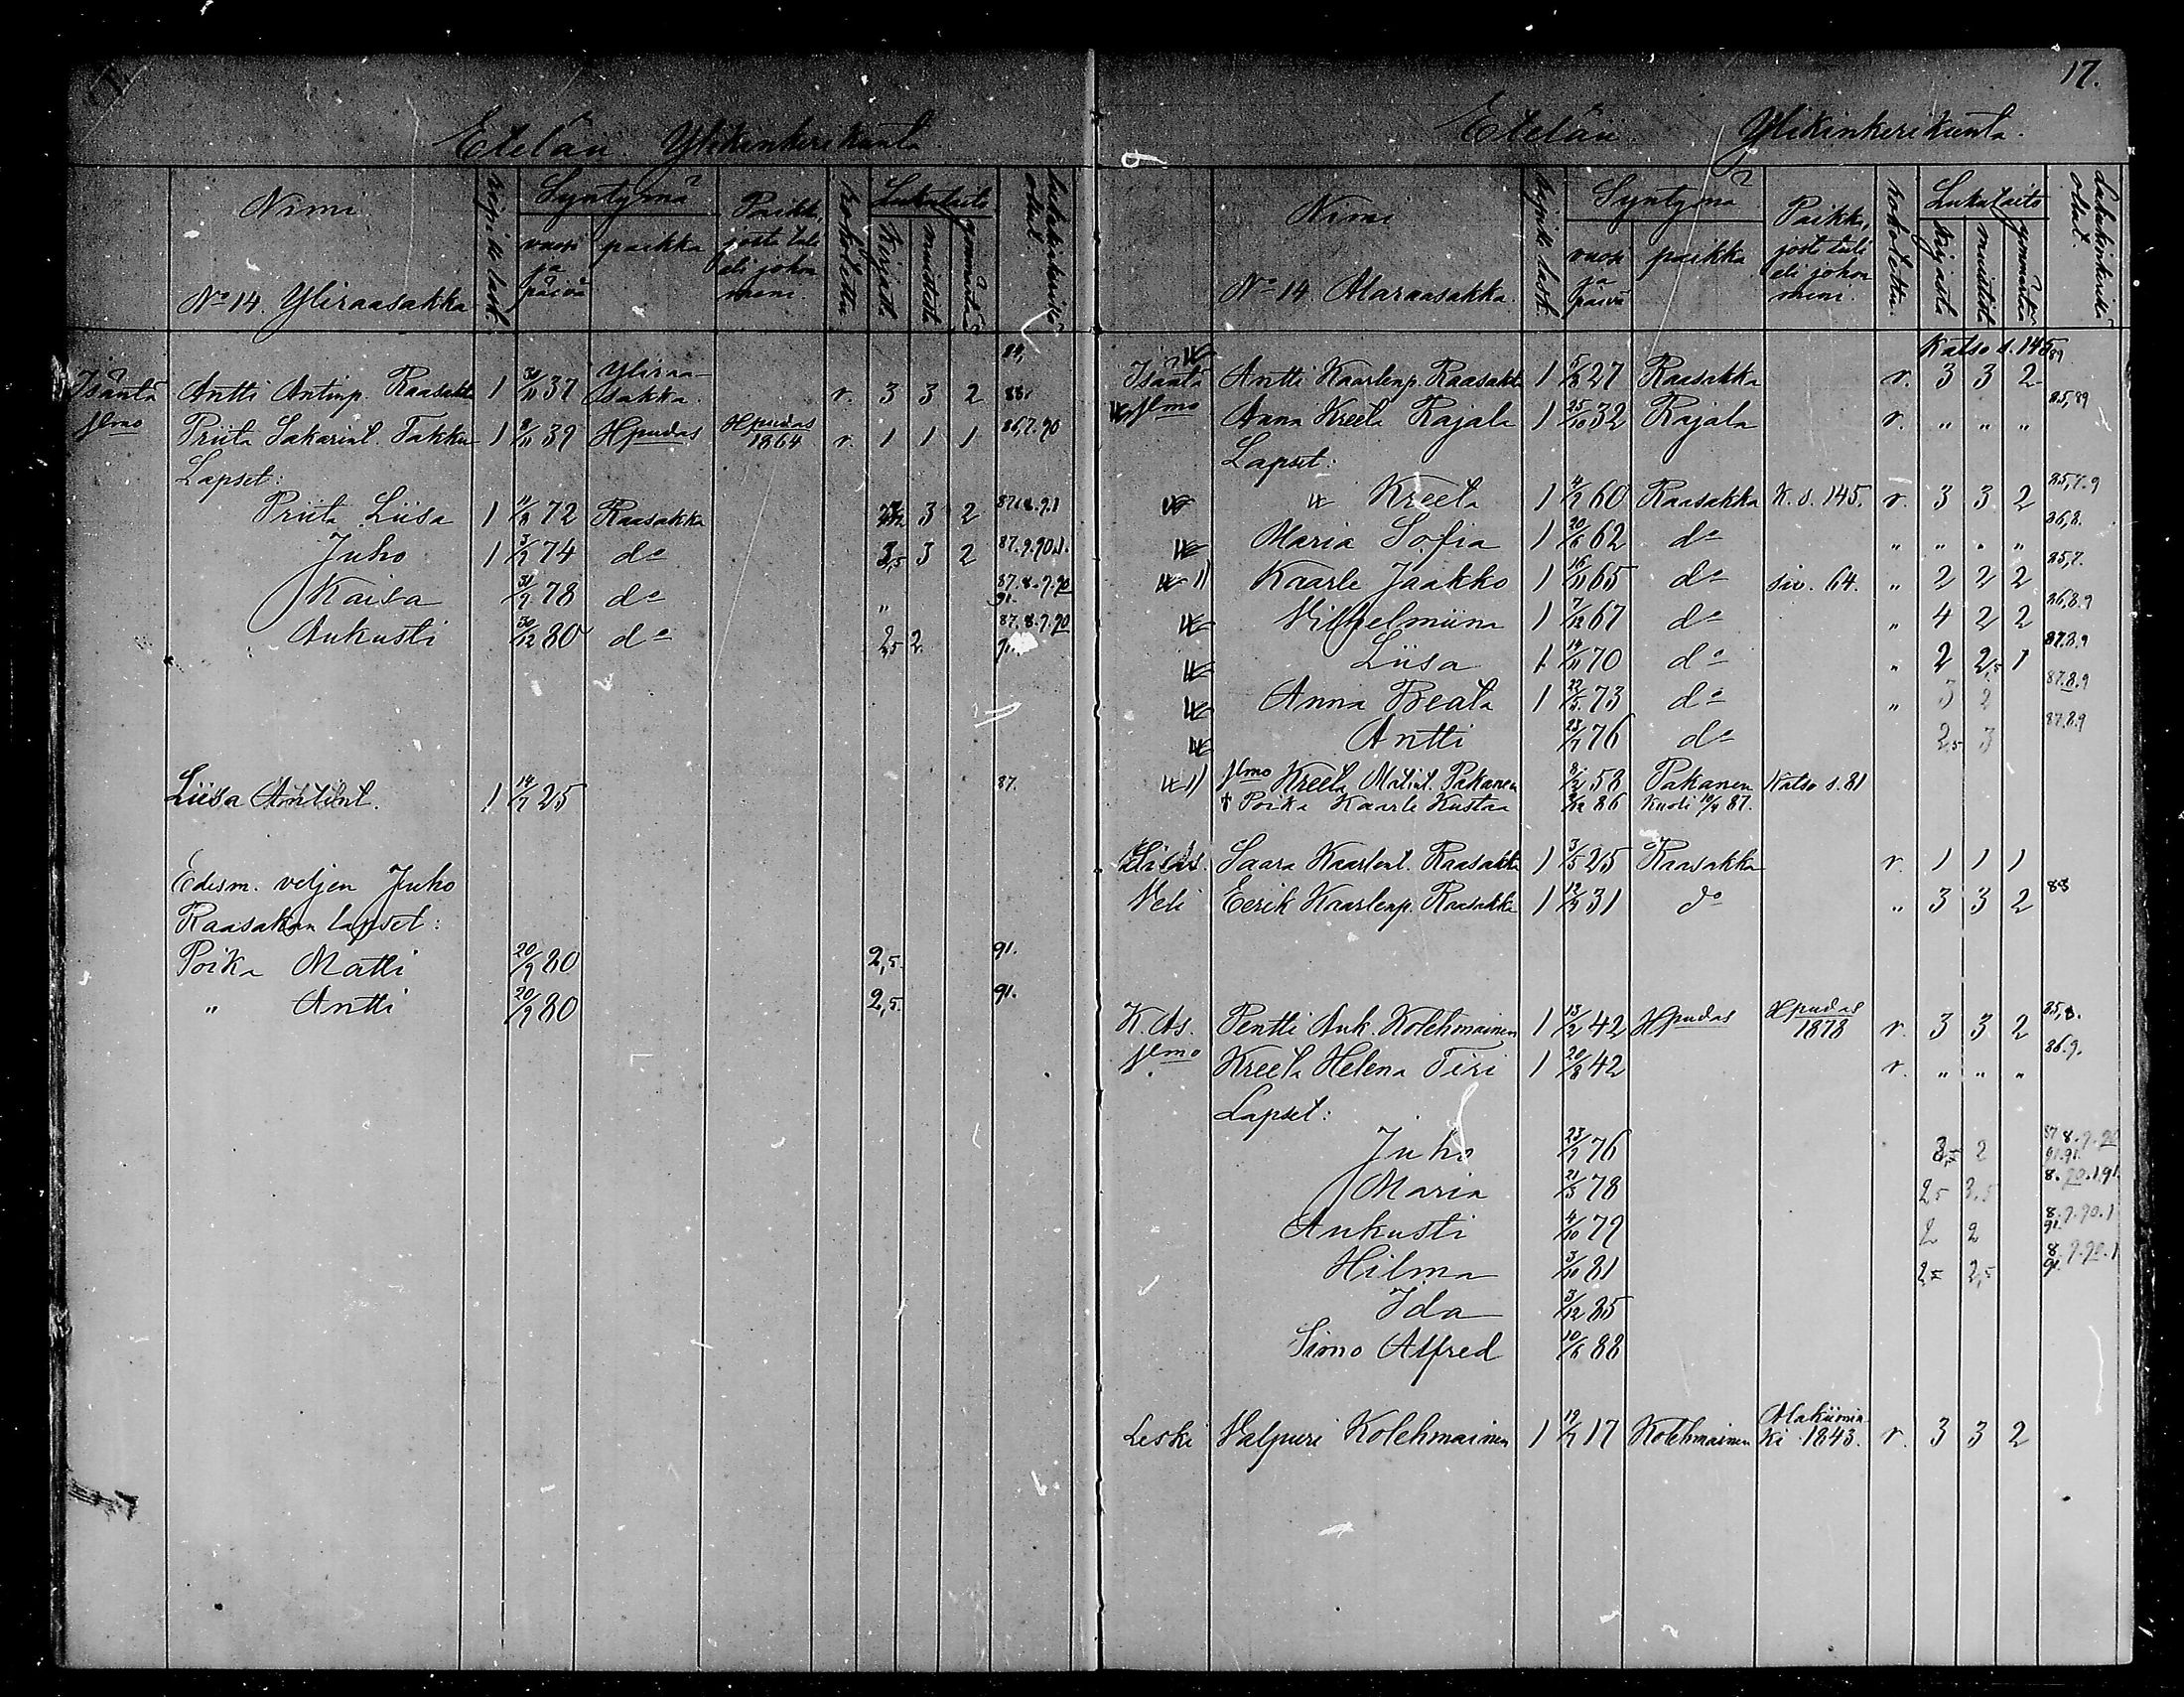 Etelän Ylikinkerikunta
Nimi
ripille lask.
Syntymä
vuosi ja päivä
paikka
Paikka, josta tuli eli johon meni.
rokotettu
Lukutaito
kirjasta
muistista
ymmärtää
Lukukinkerillä ollut.
No 14. Yliraasakka
84,
Isäntä Antti Antinp. Raasakka 1 37 Yliraasakka. r. 3 3 2 88.
Vmo Priita Sakarint. Takku 1 8/11 39 Hpudas Hpudas 1864 r. 1 1 1 86,7.90
Lapset:
Priita Liisa 1 11/8 72 Raasakka 3 2 87.8.9.1
Juho 1 3/9 74 do 3,5 3 2 87.9.90.1.
Kaisa 31/9 78 do " 87.8.9.90 91.
Aukusti 30/12 80 do 2,5 2 87.8.9.90
Liisa Antint. 1 14/7 25 87.
Edesm. veljen Juho
Raasakan lapset:
Poika Matti 20/9 80 2,5. 91.
" Antti 20/9 80 2,5. 91.
17.
Etelän Ylikinkerikunta.
Nimi
ripille lask.
Syntymä
vuosi ja päivä
paikka
Paikka, josta tuli eli johon meni.
rokotettu.
Lukutaito
kirjasta
muistista
ymmärtää
Lukukinkerillä ollut.
No 14. Alaraasakka.
Katso s. 145 89
Isäntä Antti Kaarlenp. Raasakka 1 5/8 27 Raasakka r. 3 3 2
Vmo Anna Kreeta Rajala 1 25/10 32 Rajala r. " " " 85,89
Lapset:
Kreeta 1 4/2 60 Raasakka K.s. 145. r. 3 3 2 85,7.9
Maria Sofia 1 20/8 62 do " " " " 86,8.
Kaarle Jaakko 1 16/11 65 do siv. 64. " 2 2 2 85,7.
Vilhelmiina 1 7/12 67 do " 4 2 2 86,8.9
Liisa 1 14/11 70 do " 2 2,5 1 87.8.9
Anna Beata 1 22/5 73 do " 3 2 87.8.9
Antti 23/7 76 do 2,5 3 87.8.9
Vmo Kreeta Matint. Pakanen 58 Pakanen Katso s. 81
† Poika Kaarle Kustaa 86 Kuoli 10/4 87.
Saara Kaarlent. Raasakka 1 3/5 25 Raasakka r. 1 1 1
Veli Eerik Kaarlenp. Raasakka 1 12/9 31 do " 3 3 2 88
K. As. Pentti Auk. Kolehmainen 1 13/2 42 Hpudas Hpudas 1878 r. 3 3 2 85,8.
Vmo Kreeta Helena Tiri 1 20/8 42 r. " " " 86.9.
Lapset:
Juho 23/7 76 3,5 2 87 8.9.90 91.91.
Maria 21/3 78 2,5 3,5 8.90.1.91.
Aukusti 4/10 79 2 2 8.9.90.1 91.
Hilma 3/10 81 2,5 2,5 8.9.90.1 91.
Ida 3/12 85
Simo Alfred 10/6 88
Leski Valpuri Kolehmainen 1 19/7 17 Kolehmainen Alakiiminki 1843. r. 3 3 2